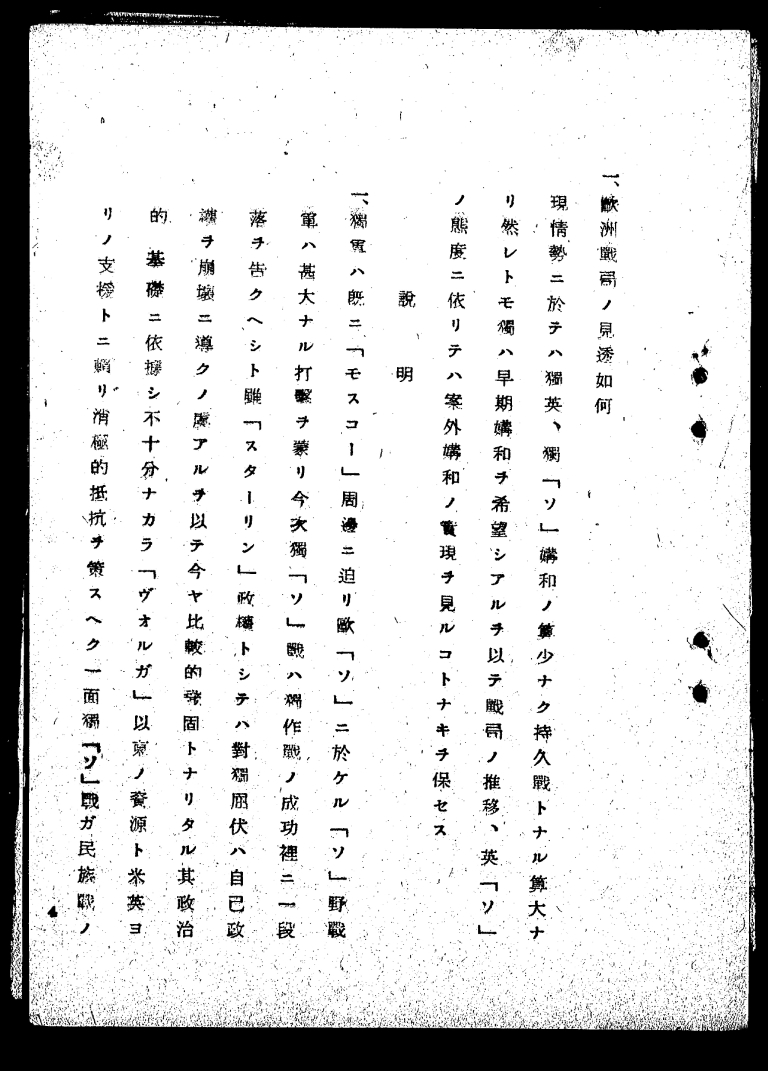 一、歐洲戰局ノ見透如何
現情勢ニ於テハ獨英、獨「ソ」媾和ノ算少ナク持久戰トナル算大ナ
リ然レトモ獨ハ早期媾和ヲ希望シアルヲ以テ戰局ノ推移、英「ソ」
ノ態度ニ依リテハ案外媾和ノ實現ヲ見ルコトナキヲ保セス
說明
一、獨軍ハ既ニ「モスコー」周邊ニ迫リ歐「ソ」ニ於ケル「ソ」野戰
軍ハ甚大ナル打擊ヲ蒙リ今次獨「ソ」戰ハ獨作戰ノ成功裡ニ一段
落ヲ告クヘシト雖「スターリン」政權トシテハ對獨屈伏ハ自己政
權ヲ崩壞ニ導クノ虞アルヲ以テ今ヤ比較的鞏固トナリタル其政治
的基礎ニ依據シ不十分ナカラ「ヴォルガ」以東ノ資源ト米英ヨ
リノ支援トニ賴リ消極的抵抗ヲ策スヘク一面獨「ソ」戰ガ民族戰ノ
4